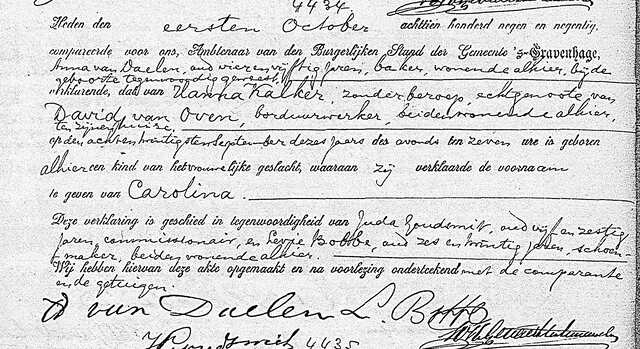 4434.
Heden den eersten October achttien honderd negen en negentig,
compareerde voor ons, Ambtenaar van den Burgerlijken Stand der Gemeente 's-Gravenhage,
Anna van Daelen, oud vierenvijftig jaren, baker, wonende alhier, bij de
geboorte tegenwoordig geweest, zij
verklarende, dat van Hanna Kalker, zonder beroep, echtgenoote van
David van Oven, borduurwerker, beiden wonende alhier,
ten zijnen huize
op den achtentwintigsten September dezes jaars des avonds ten zeven ure is geboren
alhier een kind van het vrouwelijke geslacht, waaraan zij verklaarde de voornaam
te geven van Carolina.
Deze verklaring is geschied in tegenwoordigheid van Juda Goudsmit, oud vijf en zestig
jaren, commissionair, en Levie Botbe, oud zes en twintig jaren, schoen-
maker, beiden wonende alhier.
Wij hebben hiervan deze akte opgemaakt en na voorlezing onderteekend met de comparante
en de getuigen.
A van Daelen L. Botbe
4435